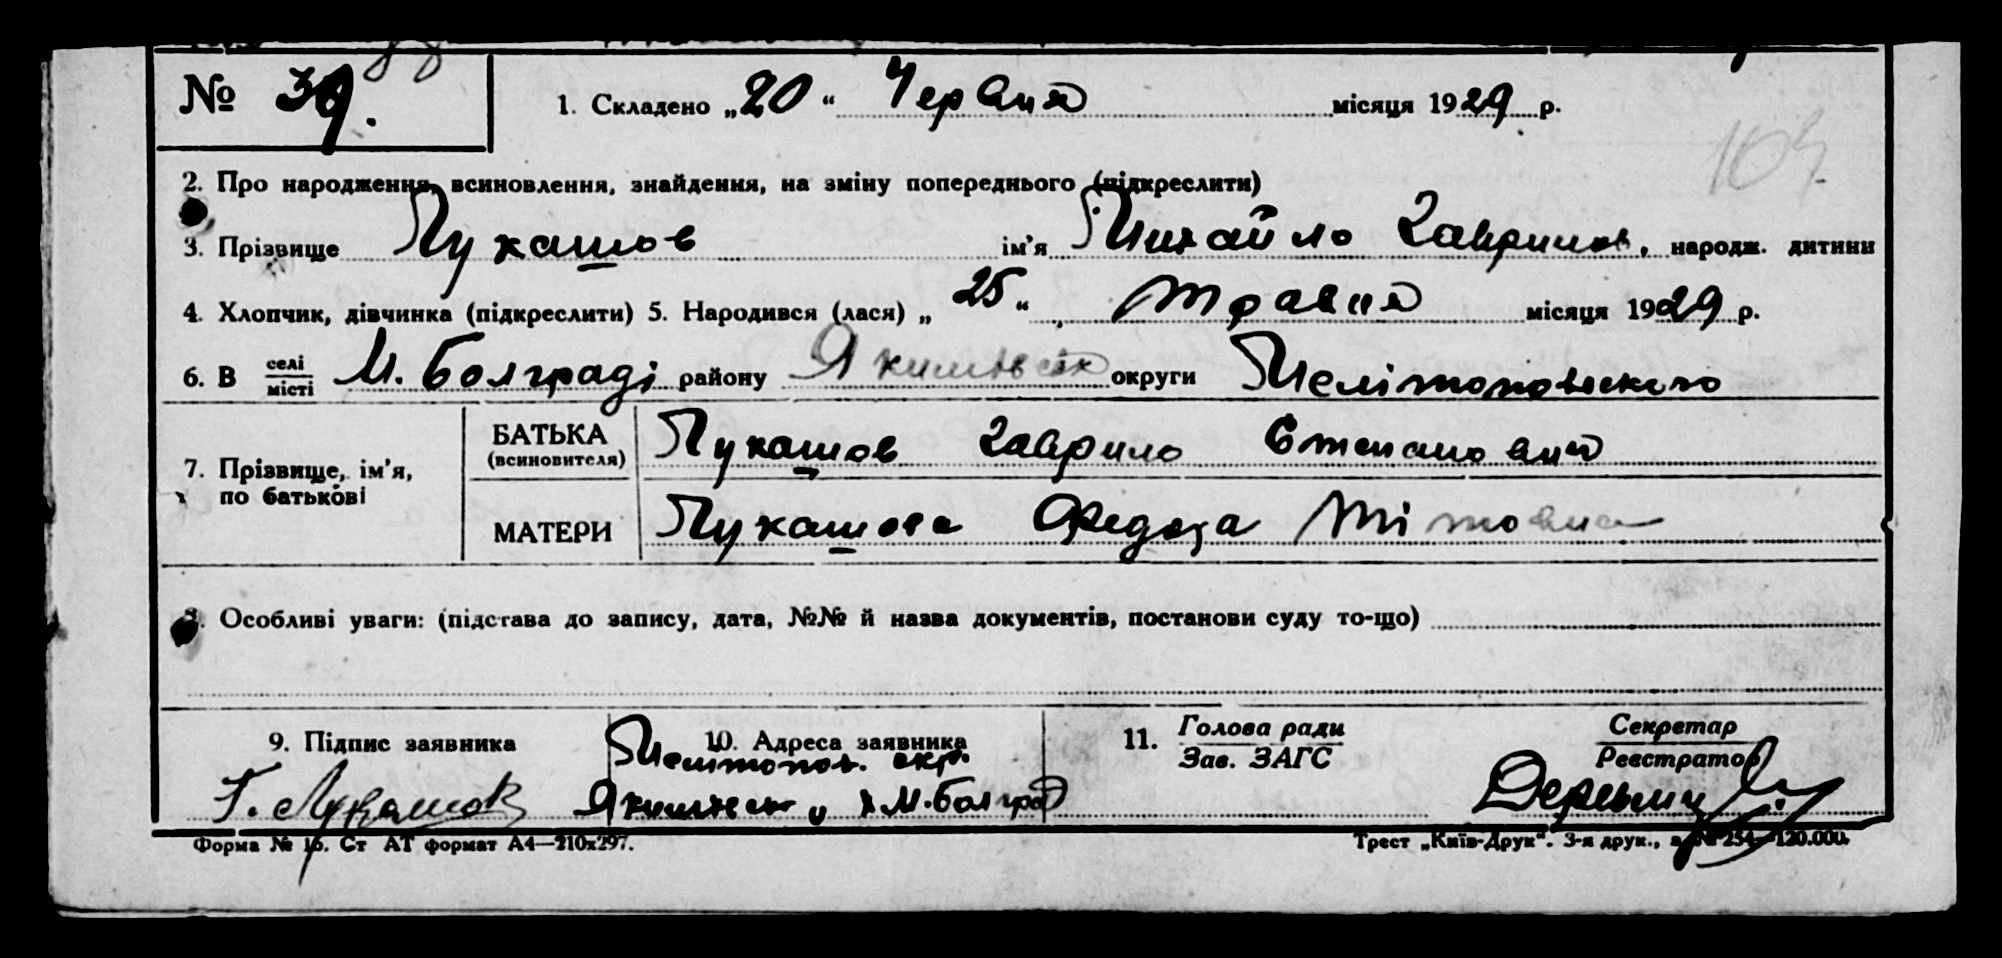 № 39.
1. Складено „20“ Червня місяця 1929 р.
104
2. Про народження, всиновлення, знайдення, на зміну попереднього (підкреслити)
3. Прізвище Лукашов ім’я Михайло Гаврилов, народж. дитини
4. Хлопчик, дівчинка (підкреслити) 5. Народився (лася) „25“ травня місяця 1929 р.
6. В селі/місті М. Болграді району Якимівськ округи Мелітопольского
7. Прізвище, ім’я, по батькові
БАТЬКА (всиновителя) Лукашов Гаврило Степанович
МАТЕРИ Лукашова Федора Тітовна
8. Особливі уваги: (підстава до запису, дата, №№ й назва документів, постанови суду то-що)
9. Підпис заявника
Г. Лукашов
10. Адреса заявника
Мелитопол. окр.
М. Болград
11. Голова ради
Зав. ЗАГС
Секретар
Реєстратор
Форма № 16. Ст АТ формат А4—210х297.
Трест „Київ-Друк“. 3-я друк., № 254—120.000.